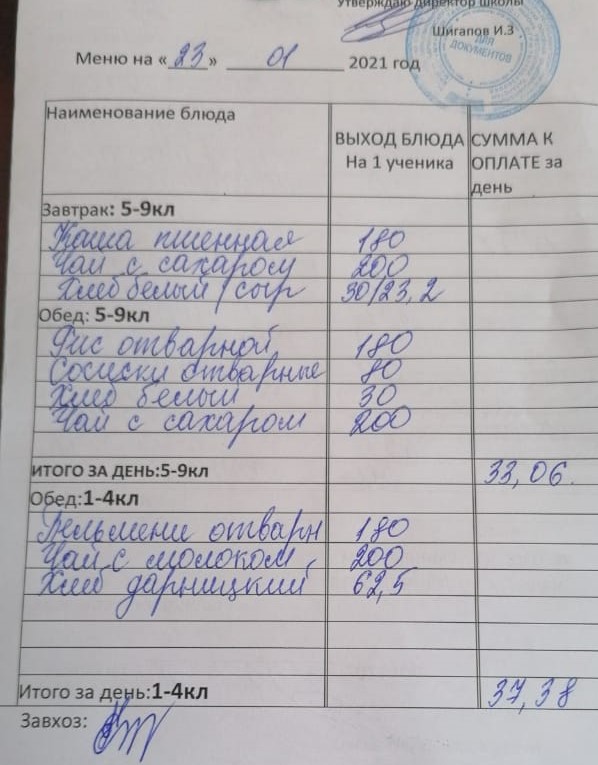 Утверждаю директор школы
Шигапов И.З
ДЛЯ ДОКУМЕНТОВ
Меню на «23» 01 2021 год
Наименование блюда
ВЫХОД БЛЮДА СУММА К
На 1 ученика ОПЛАТЕ за
день
Завтрак: 5-9кл
Каша пшенная 180
Чай с сахаром 200
Хлеб белый/сыр 30/23,2
Обед: 5-9кл
Рис отварной 180
Сосиски отварные 80
Хлеб белый 30
Чай с сахаром 200
ИТОГО ЗА ДЕНЬ:5-9кл 33,06.
Обед:1-4кл
Пельмени отварн 180
Чай с молоком 200
Хлеб дарницкий 62,5
Итого за день:1-4кл 37,38
Завхоз: